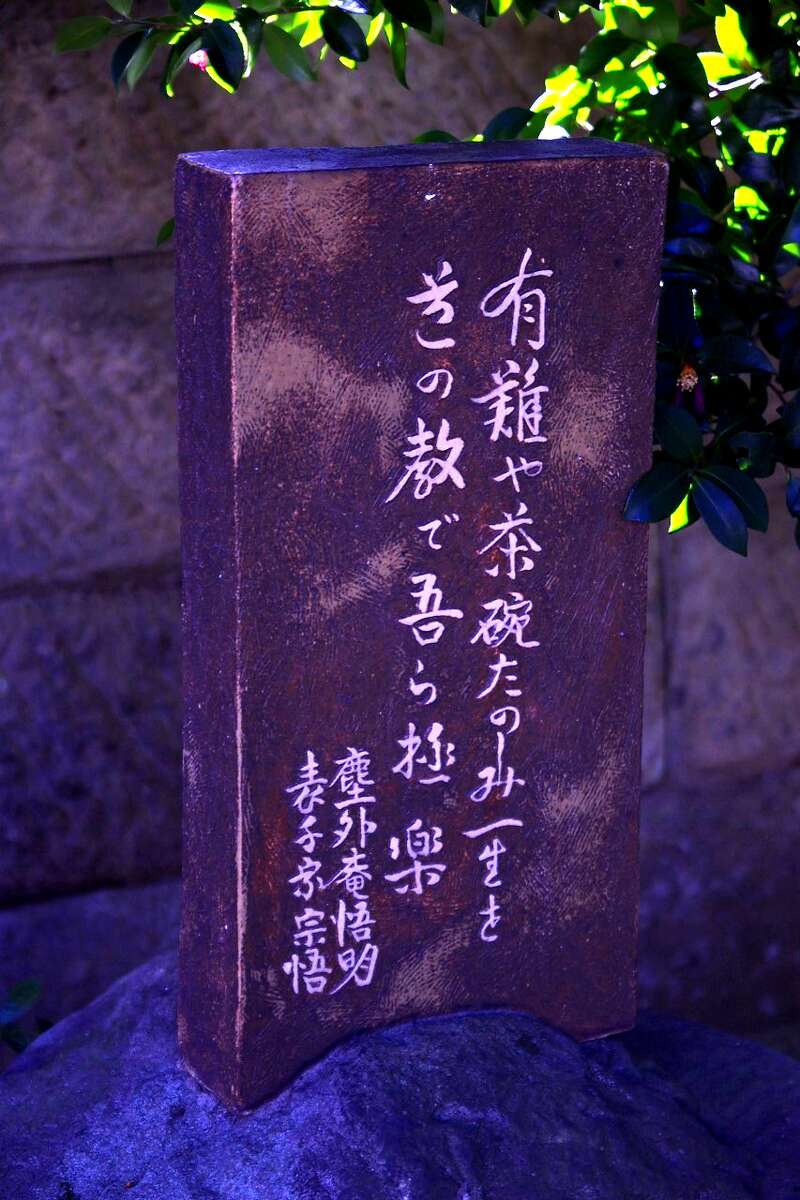 有難や茶碗たのみ一生を
茲の教で吾ら極楽
塵外庵悟明
表千家宗悟